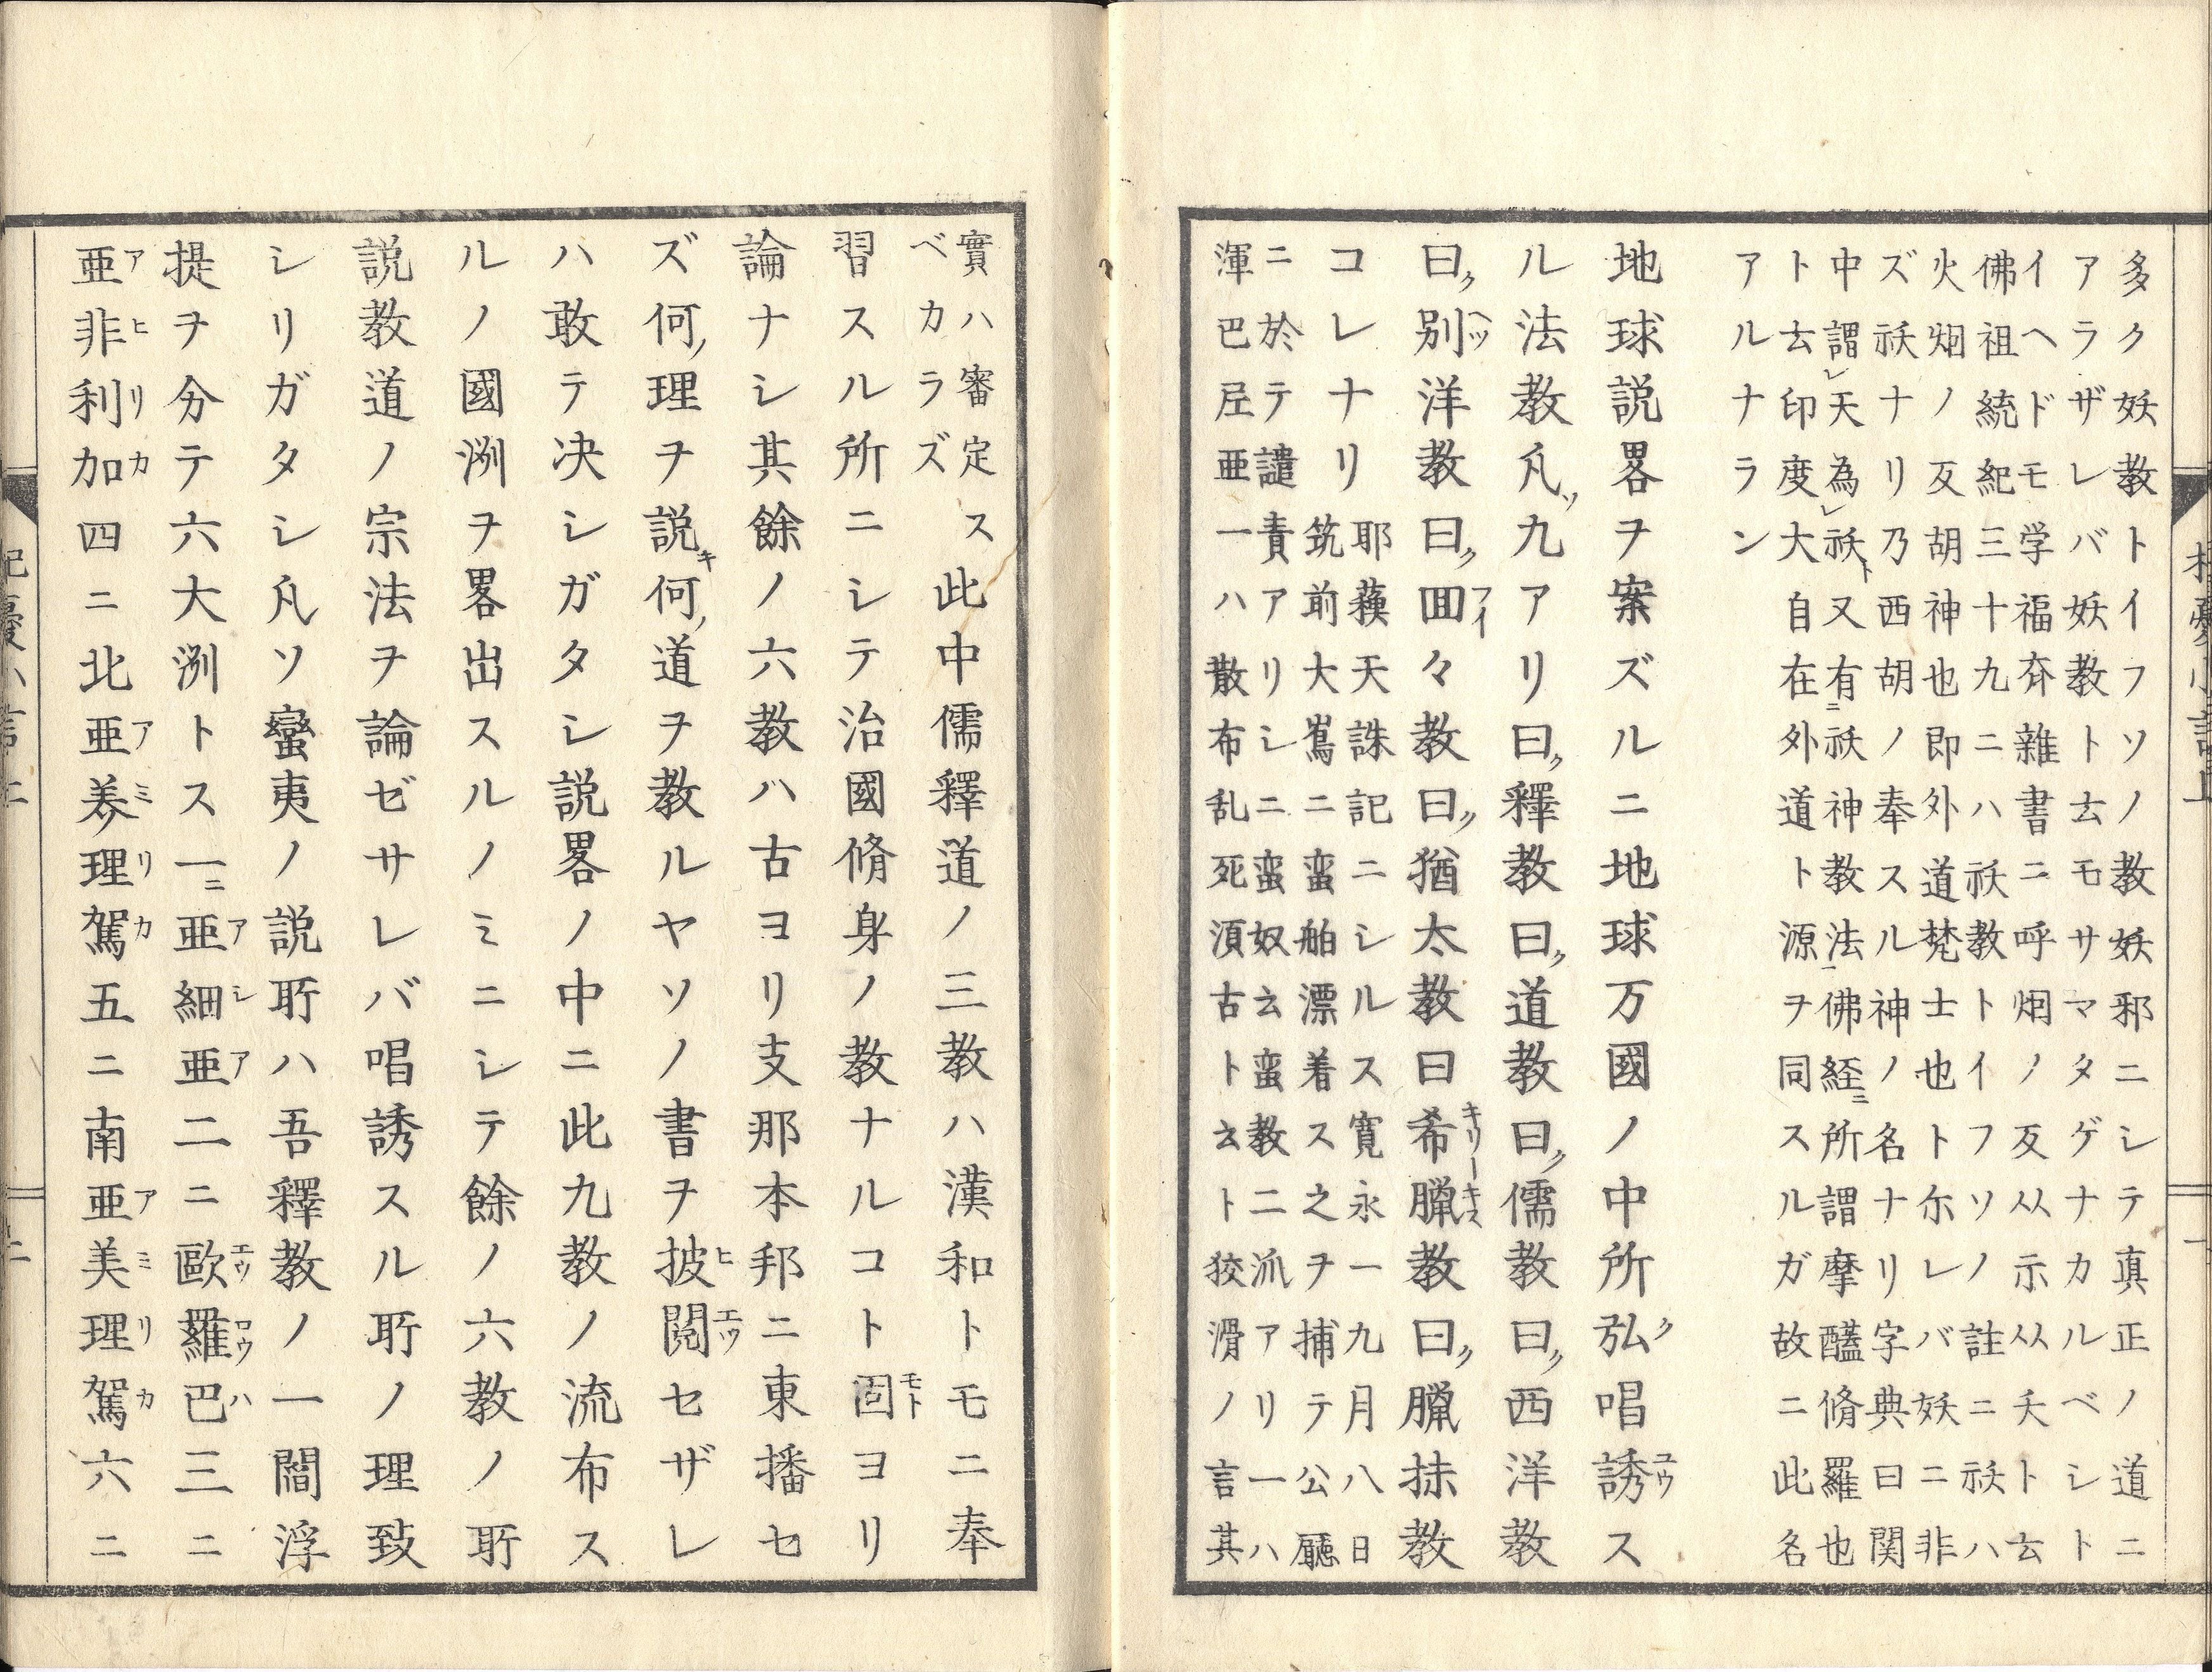 多ク妖教トイフソノ教妖邪ニシテ真正ノ道ニ
アラザレバ妖教ト云モサマタゲナカルベシト
イヘドモ学福斉雜書ニ呼烟ノ反从示从夭ト云
佛祖統紀三十九ニハ祅教トイフソノ註ニ祅ハ
火烟ノ反胡神也即外道梵士也ト尓レバ妖ニ非
ズ祅ナリ乃西胡ノ奉スル神ノ名ナリ字典曰関
中謂レ天為レ祅ト又有ニ祅神教法一佛経ニ所謂摩醯脩羅也
ト云印度大自在外道ト源ヲ同スルガ故ニ此名
アルナラン
地球説畧ヲ案ズルニ地球万國ノ中所弘ク唱誘ユウス
ル法教凡ソ九アリ曰ク釋教曰ク道教曰ク儒教曰ク西洋教
曰ク別ヘツ洋教曰ク囬フイ々教曰ク猶太教曰希臘キリーキス教曰ク臘抹教
コレナリ
耶蘓天誅記ニシルス寛永一九月八日
筑前大嶌ニ蛮舶漂着ス之ヲ捕テ公廳
ニ於テ譴責アリシニ蛮奴云蛮教二派アリ一ハ
渾巴𡱈亜一ハ散布乱死須古ト云ト狡滑ノ言其
實ハ審定ス
ベカラズ
此中儒釋道ノ三教ハ漢和トモニ奉
習スル所ニシテ治國脩身ノ教ナルコト固モトヨリ
論ナシ其餘ノ六教ハ古ヨリ支那本邦ニ東播セ
ズ何ノ理ヲ説キ何ノ道ヲ教ルヤソノ書ヲ披ヒ閲エツセザレ
ハ敢テ决シガタシ説畧ノ中ニ此九教ノ流布ス
ルノ國洲ヲ畧出スルノミニシテ餘ノ六教ノ所
説教道ノ宗法ヲ論ゼサレバ唱誘スル所ノ理致
シリガタシ凡ソ蠻夷ノ説所ハ吾釋教ノ一閻浮
提ヲ分テ六大洲トス一ニ亜ア細シ亜ア二ニ歐エウ羅ロウ巴ハ三ニ
亜ア非ヒ利リ加カ四ニ北亜ア美ミ理リ駕カ五ニ南亜ア美ミ理リ駕カ六ニ